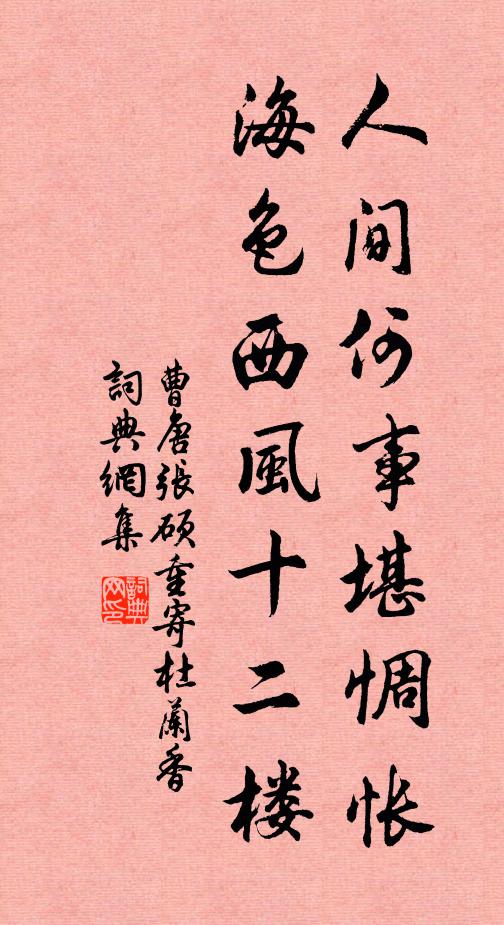 人间何事堪惆怅
海色西風十二楼
曹唐張碩重寄杜蘭香
詞典網集
詞典
网印